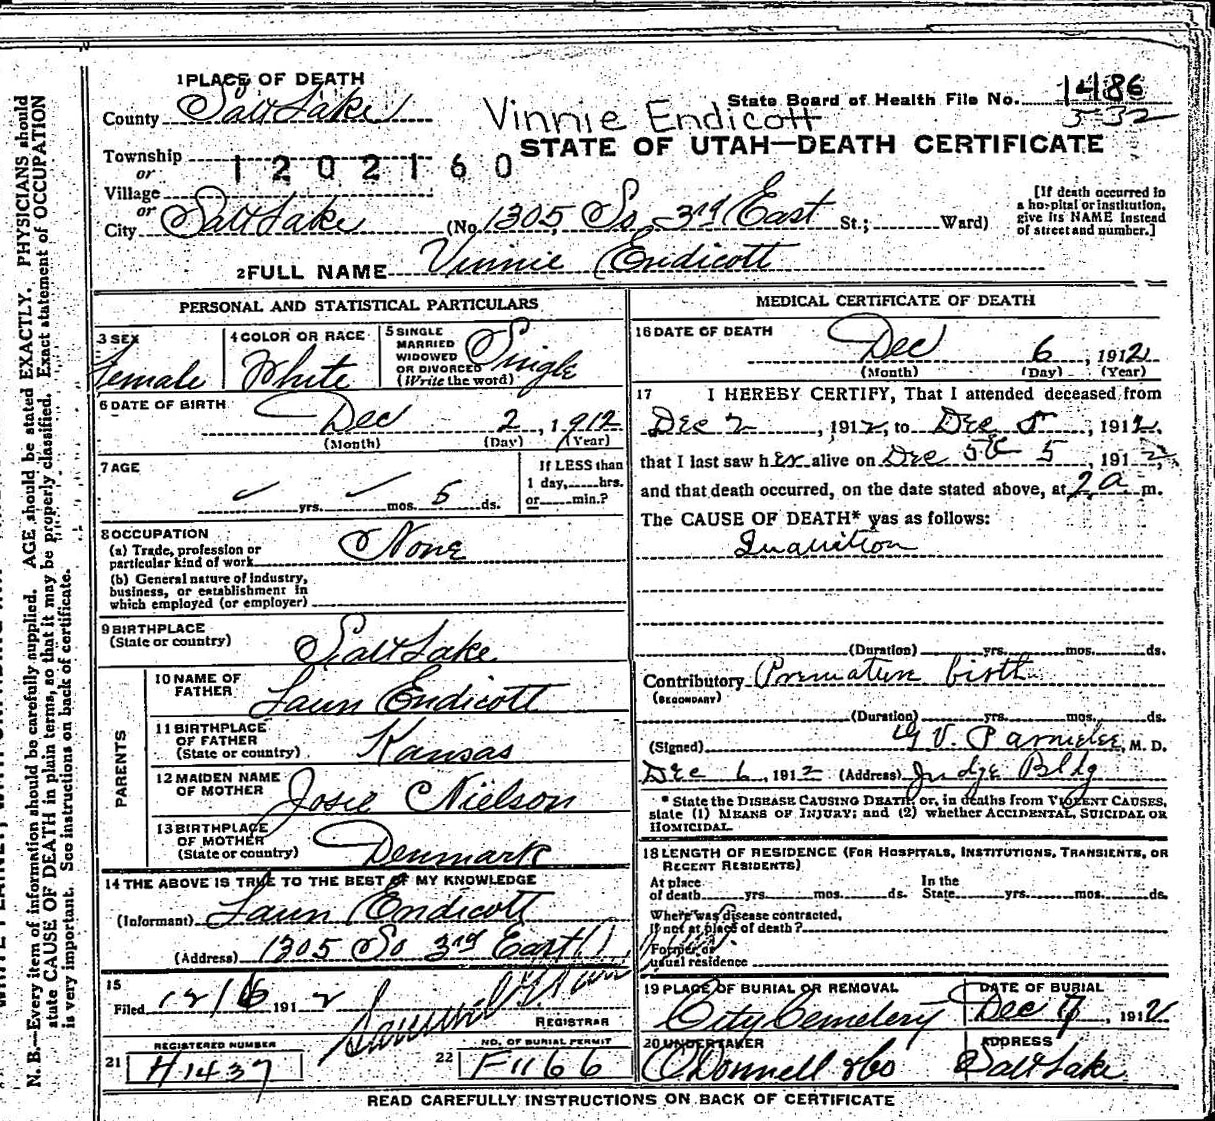 1 PLACE OF DEATH
County Salt Lake
State Board of Health File No. 1486
532
Vinnie Endicott
STATE OF UTAH—DEATH CERTIFICATE
Township
or
1202160
Village
or
City Salt Lake (No 1305 So 3rd East St.; Ward)
[If death occurred in
a hospital or institution,
give its NAME instead
of street and number.]
2 FULL NAME Vinnie Endicott
PERSONAL AND STATISTICAL PARTICULARS
3 SEX
Female
4 COLOR OR RACE
White
5 SINGLE
MARRIED
WIDOWED
OR DIVORCED
(Write the word)
Single
6 DATE OF BIRTH
Dec 2, 1912
(Month) (Day) (Year)
7 AGE
yrs. mos. 5 ds.
If LESS than
1 day, hrs.
or min.?
8 OCCUPATION
(a) Trade, profession or
particular kind of work None
(b) General nature of industry,
business, or establishment in
which employed (or employer)
9 BIRTHPLACE
(State or country) Salt Lake
PARENTS
10 NAME OF
FATHER Endicott
11 BIRTHPLACE
OF FATHER
(State or country) Kansas
12 MAIDEN NAME
OF MOTHER Josie Nielson
13 BIRTHPLACE
OF MOTHER
(State or country) Denmark
14 THE ABOVE IS TRUE TO THE BEST OF MY KNOWLEDGE
(Informant) Endicott
(Address) 1305 So 3rd East
15
Filed 12/6 1912
REGISTRAR
REGISTERED NUMBER
21 H1437
NO. OF BURIAL PERMIT
22 F1166
MEDICAL CERTIFICATE OF DEATH
16 DATE OF DEATH
Dec 6, 1912
(Month) (Day) (Year)
17 I HEREBY CERTIFY, That I attended deceased from
Dec 2, 1912, to Dec 5, 1912,
that I last saw her alive on Dec 5 1912,
and that death occurred, on the date stated above, at 2 a m.
The CAUSE OF DEATH* was as follows:
Inanition
(Duration) yrs. mos. ds.
Contributory Premature birth
(SECONDARY)
(Duration) yrs. mos. ds.
(Signed) G V. Parmelee, M. D.
Dec 6, 1912 (Address) Judge Bldg
* State the DISEASE CAUSING DEATH, or, in deaths from VIOLENT CAUSES,
state (1) MEANS OF INJURY; and (2) whether ACCIDENTAL, SUICIDAL OR
HOMICIDAL.
18 LENGTH OF RESIDENCE (FOR HOSPITALS, INSTITUTIONS, TRANSIENTS, OR
RECENT RESIDENTS)
At place
of death yrs. mos. ds.
In the
State yrs. mos. ds.
Where was disease contracted,
if not at place of death?
Former or
usual residence
19 PLACE OF BURIAL OR REMOVAL
City Cemetery
DATE OF BURIAL
Dec 7, 1912
20 UNDERTAKER
O'Donnell & Co
ADDRESS
Salt Lake
READ CAREFULLY INSTRUCTIONS ON BACK OF CERTIFICATE
N. B.—Every item of information should be carefully supplied. AGE should be stated EXACTLY. PHYSICIANS should
state CAUSE OF DEATH in plain terms, so that it may be properly classified. Exact statement of OCCUPATION
is very important. See instructions on back of certificate.